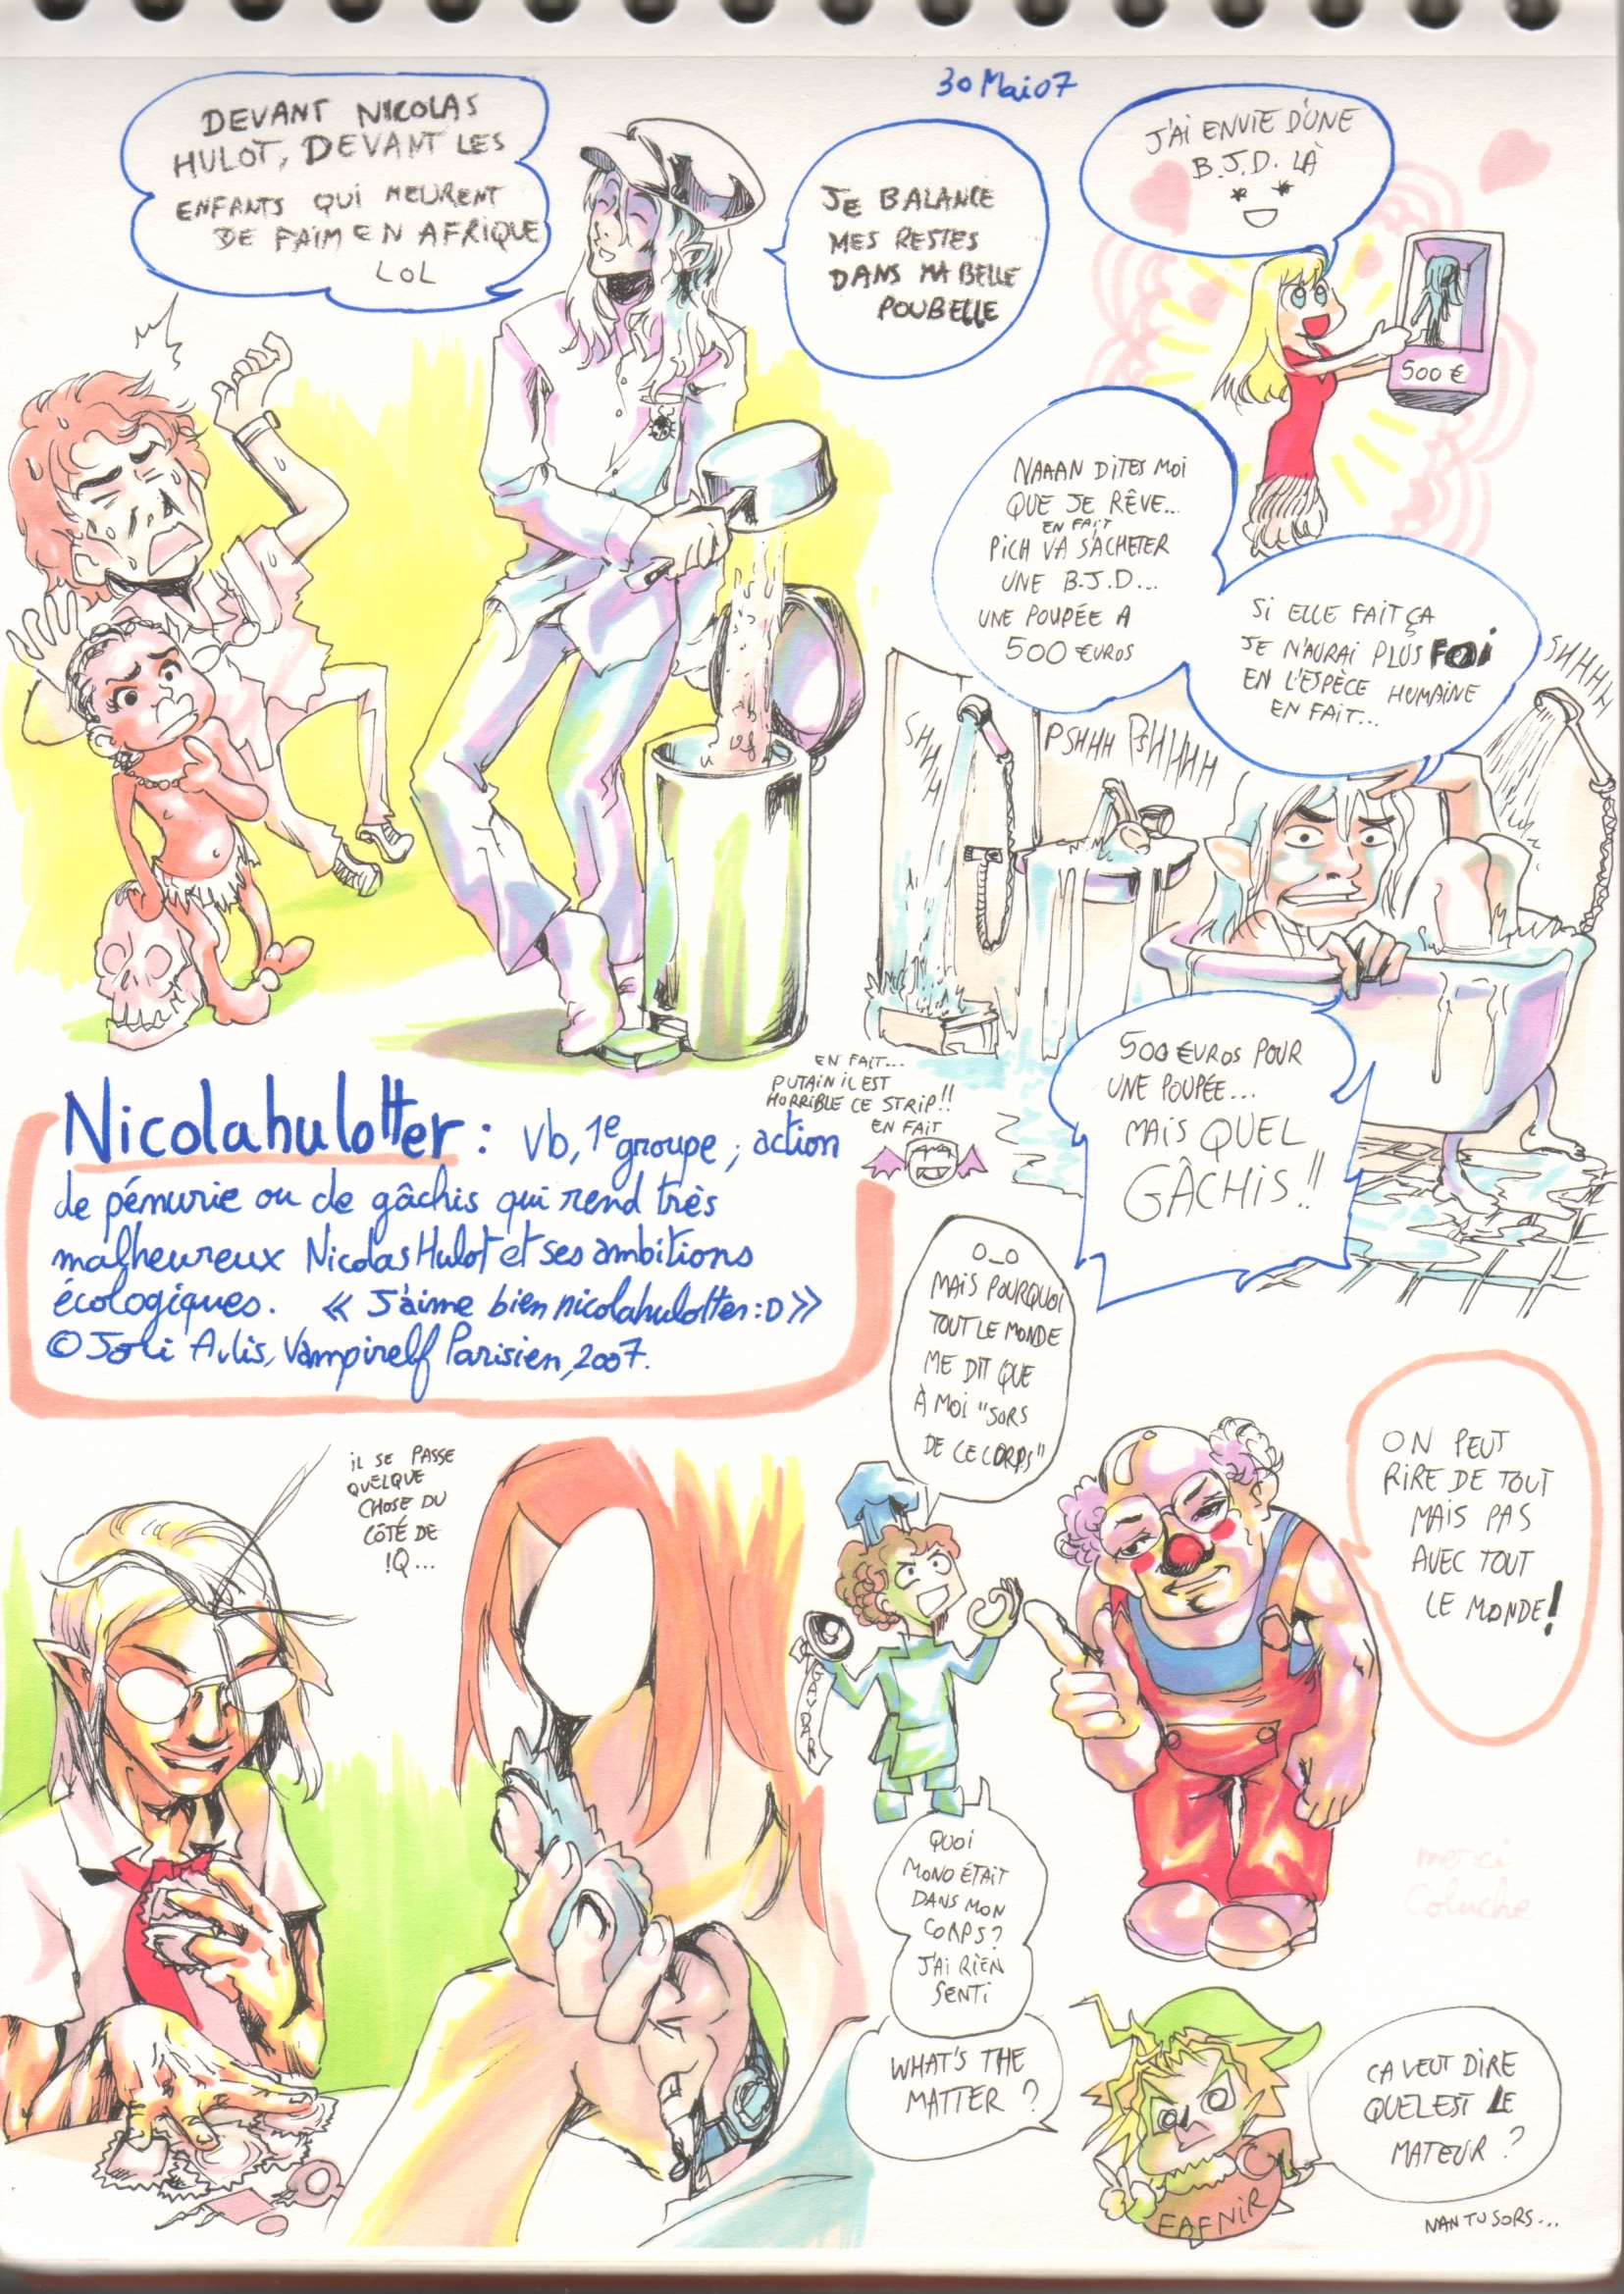 30 Mai 07
DEVANT NICOLAS
HULOT, DEVANT LES
ENFANTS QUI MEURENT
DE FAIM EN AFRIQUE
LOL
JE BALANCE
MES RESTES
DANS MA BELLE
POUBELLE
J'AI ENVIE D'UNE
B.J.D. LÀ
500 €
NAAAN DITES MOI
QUE JE RÊVE...
EN FAIT
PICH VA S'ACHETER
UNE B.J.D...
UNE POUPÉE A
500 €UROS
SI ELLE FAIT ÇA
JE N'AURAI PLUS FOI
EN L'ESPÈCE HUMAINE
EN FAIT...
SHHH
PSHHH PSHHHHH
SHHHH
500 €UROS POUR
UNE POUPÉE...
MAIS QUEL
GÂCHIS!!
EN FAIT...
PUTAIN IL EST
HORRIBLE CE STRIP!!
EN FAIT
Nicolahulotter : Vb, 1e groupe ; action
de pénurie ou de gâchis qui rend très
malheureux Nicolas Hulot et ses ambitions
écologiques. « J'aime bien nicolahulotter :D »
© Joli Avlis, Vampirelf Parisien, 2007.
IL SE PASSE
QUELQUE
CHOSE DU
CÔTÉ DE
!Q...
O_O
MAIS POURQUOI
TOUT LE MONDE
ME DIT QUE
À MOI "SORS
DE CE CORPS"
ON PEUT
RIRE DE TOUT
MAIS PAS
AVEC TOUT
LE MONDE!
merci
Coluche
QUOI
MONO ÉTAIT
DANS MON
CORPS?
J'AI RIEN
SENTI
WHAT'S THE
MATTER ?
FAFNIR
CA VEUT DIRE
QUEL EST LE
MATEUR ?
NAN TU SORS...